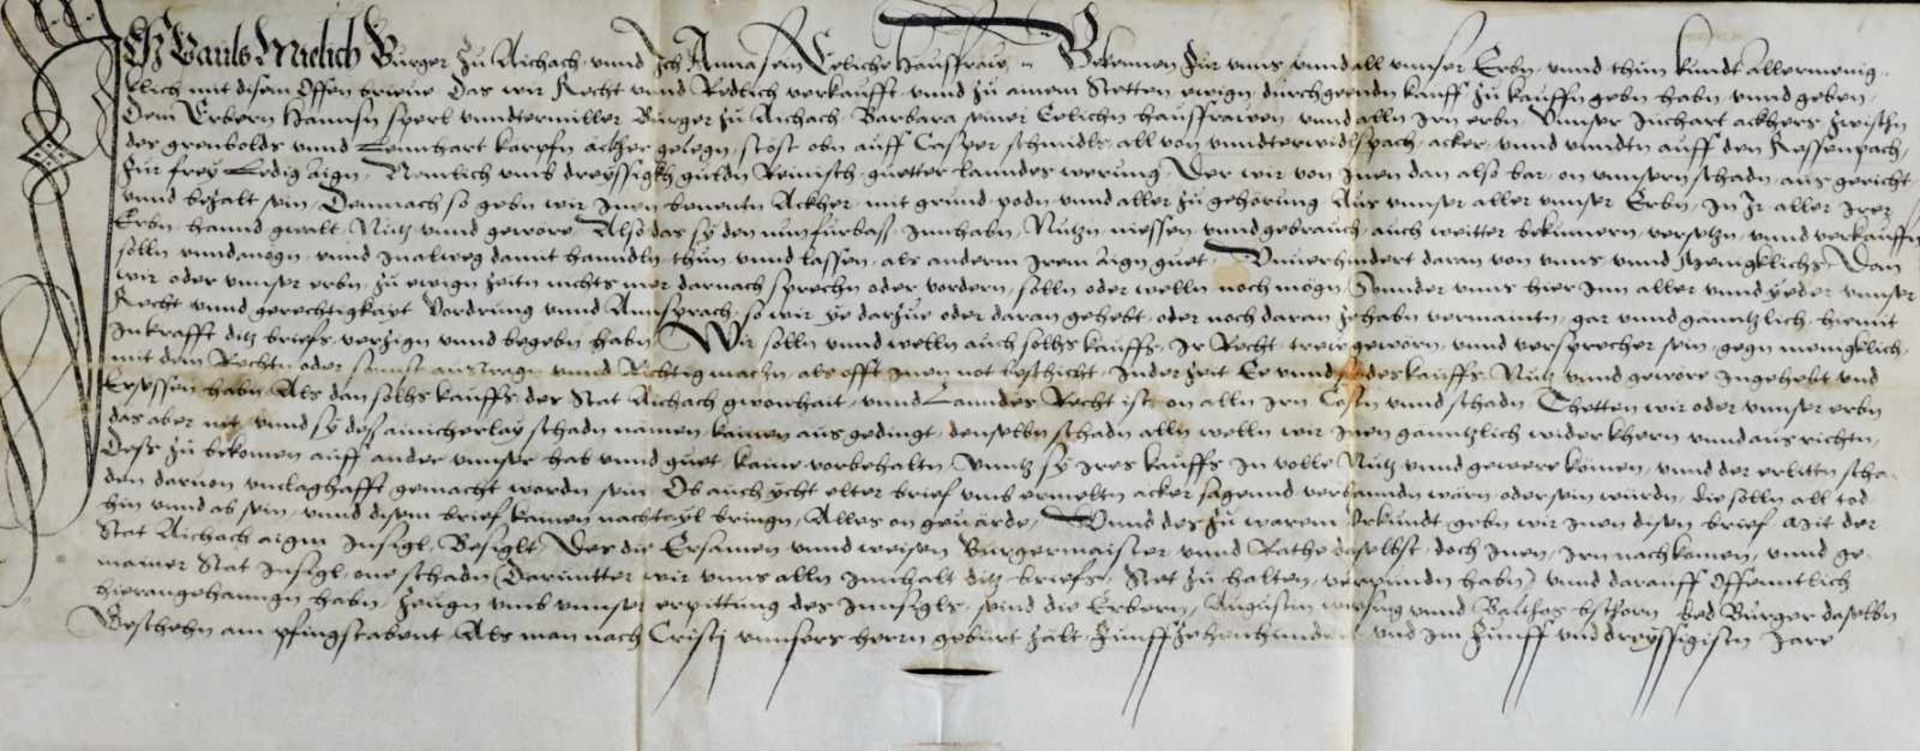 Ich Pauls Mielich Burger zu Aichach vnnd Ich Anna sein Eeliche hausfraw Bekennen für vnns vnnd all vnnser Erbn vnnd thun kundt allermenig
klich mit disem Offen brieue Das wir Recht vnnd Redlich verkaufft vnnd zu ainem Stetten ewign durchgeendn kauff zu kauffn gebn habn vnnd geben
Dem Erbern Hannsn sperl vnndtermüller Burger zu Aichach Barbara seiner Eelichn hausfrawen vnnd alln irn erbn Vnnser Juchart ackhers zwischn
des grenbolds vnnd Leonhart karpfn äckher gelegn stöst obn auff Casper schmidls all von vnndterwidlspach acker vnnd vnndtn auff den Kessenpach
für frey Ledig aign Nemlich vmb dreyssigkh guldn Reinisch guetter lanndes werung Der wir von Inen dan also bar on vnnsern schadn aus gericht
vnnd bezalt sein Demnach so gebn wir Inen benentn Ackher mit grund podn vnnd aller zu gehörung Aus vnnser aller vnnser Erbn In Ir aller Irer
Erbn hannd gwalt Nutz vnnd gewere Also das sy den nun fürbaß Innhabn Nutzn niessen vnnd gebrauch auch weitter bekümern versetzn vnnd verkauffn
solln vnnd mögn vnnd Inalweg damit hanndln thun vnnd lassen als anderm Irem aign guet Vnuerhindert daran von vnns vnnd Menigklichs Dan
wir oder vnnser erbn zu ewign zeitn nichts mer darnach sprechn oder vordern solln oder welln noch mögn Sonnder vnns hier Inn aller vnnd yeder vnnser
Recht vnnd gerechtigkayt Vordrung vnnd Annsprach so wir ye darzue oder daran gehebt oder noch daran zehabn vermaintn gar vnnd gänntzlich hiemit
In krafft ditz briefs verzign vnnd begebn habn Wir solln vnnd welln auch solhs kauffs Ir Recht trew geweren vnnd versprecher sein gegn menigklich
mit dem Rechtn oder sunst austragn vnnd Richtig machn als offt Inen not beschicht In der zeit Ee vnnd sy des kauffs Nutz vnnd gewere Ingehebt vnd
Ersessen habn Als dan solhs kauffs der Stat Aichach gwonhait vnnd Lanndes Recht ist on alln irn Costn vnnd schadn Thetten wir oder vnnser erbn
das aber nit vnnd sy deß ainicherlay schadn namen kainen aus gedingt denselbn schadn alln welln wir Inen gänntzlich widerkhern vnnd aus richtn
Deße zu bekomen auff ander vnnser hab vnnd guet kaine vorbehaltn Vnntz sy Ires kauffs In volle Nutz vnnd gewere kömen vnnd der erlittn scha
den daruon vnclaghafft gemacht wordn sein Ob auch ycht elter brief vmb ermeltn acker sagennd verhanndn wärn oder sein würdn die solln all tod
hin vnnd ab sein vnnd disem brief kainen nachtayl bringn Alles on geuärde Vnnd des zu warem Vrkundt gebn wir Inen disen brief Mit der
Stat Aichach aigm Innsigl Besiglt Des die Ersamen vnnd weisen Burgermaister vnnd Rathe daselbst doch Inen irn nachkomen vnnd ge
mainer Stat Insigl one schadn Daruntter wir vnns alln Innhalt ditz briefs Stet zu halten verpundn habn vnnd darauff offenntlich
hierangehanngn habn Zeugn vmb vnnser erpittung des Innsigls seind die Erbern Augustin vnnd Balthas bed Burger daselbn
Geschehn am pfingstabent Als man nach Cristj vnnsers herrn geburt zält Funffzehenhundert vnd im Funff vnd dreyssigistn Jare